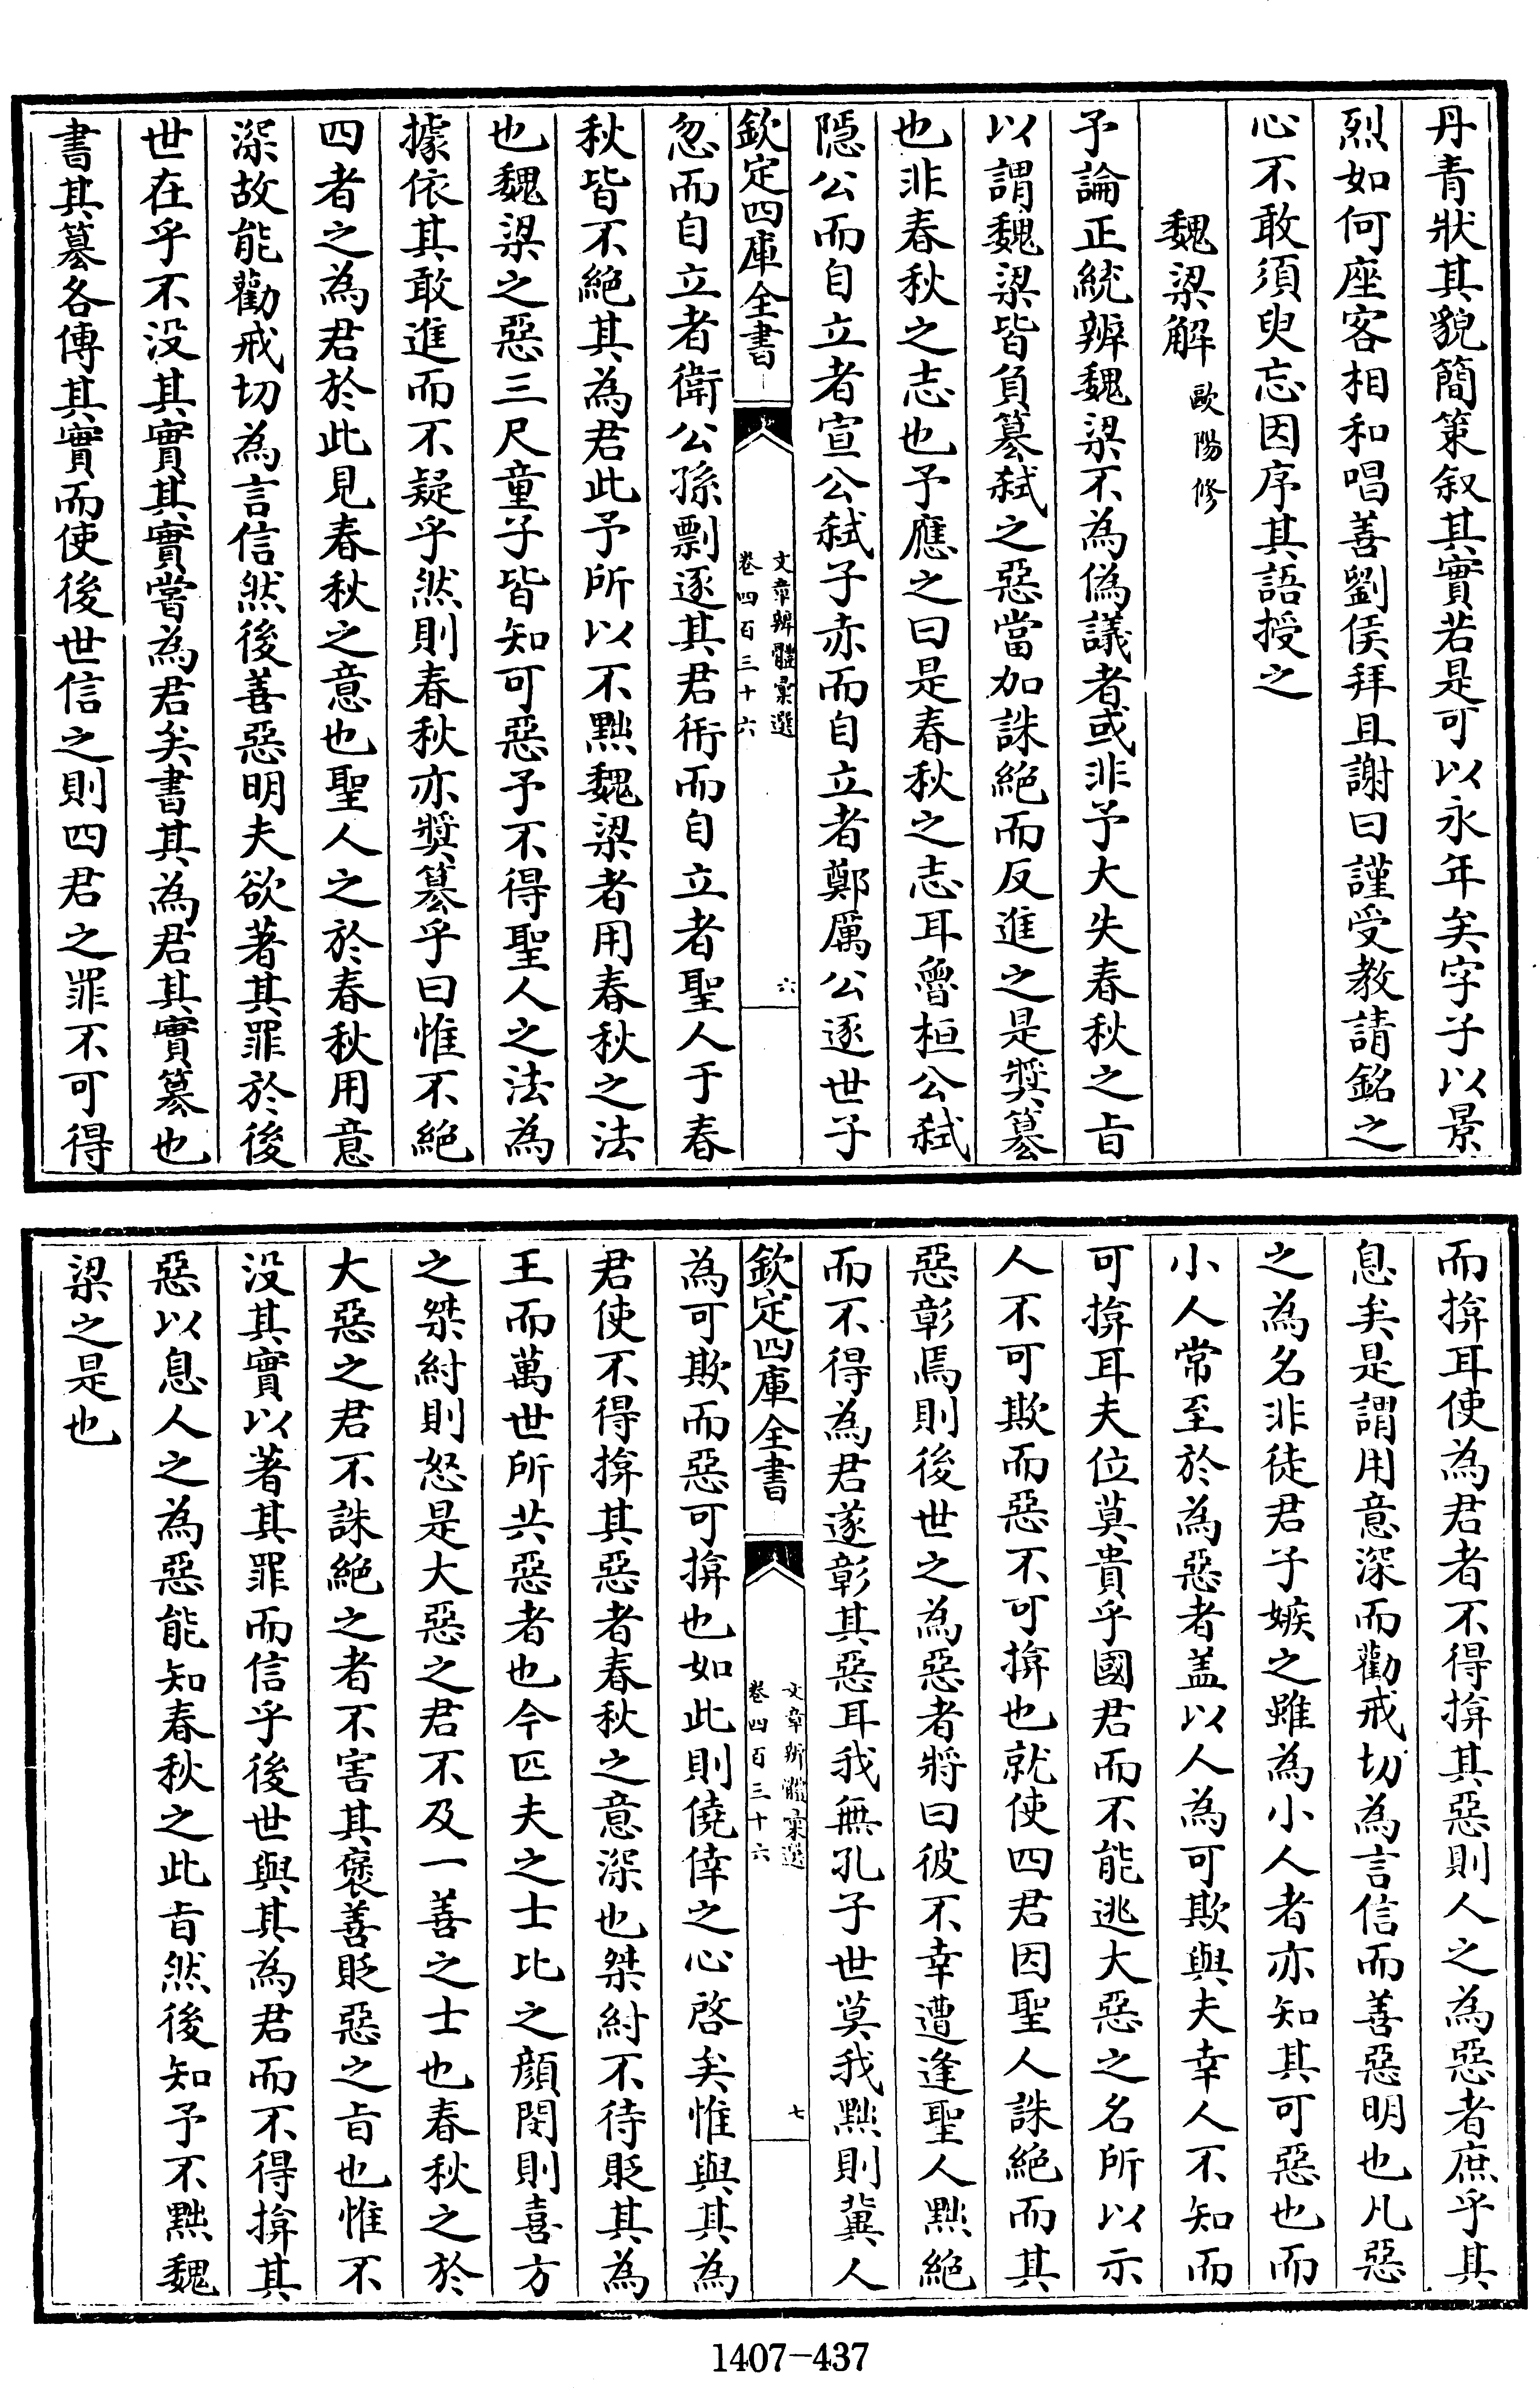 丹青狀其貌簡策叙其實若是可以永年矣字子以景
烈如何座客相和唱善劉侯拜且謝曰謹受教請銘之
心不敢須臾忘因序其語授之
魏梁解 歐陽修
予論正統辨魏梁不為偽議者或非予大失春秋之㫖
以謂魏梁皆負簒弑之惡當加誅絕而反進之是奬簒
也非春秋之志也予應之曰是春秋之志耳魯桓公弑
隱公而自立者宣公弑子赤而自立者鄭厲公逐世子
欽定四庫全書
文章辨體彙選
卷四百三十六
六
忽而自立者衛公孫剽逐其君衎而自立者聖人于春
秋皆不絕其為君此予所以不黜魏梁者用春秋之法
也魏梁之惡三尺童子皆知可惡予不得聖人之法為
據依其敢進而不疑乎然則春秋亦奬簒乎曰惟不絕
四者之為君於此見春秋之意也聖人之於春秋用意
深故能勸戒切為言信然後善惡明夫欲著其罪於後
世在乎不沒其實其實嘗為君矣書其為君其實簒也
書其簒各傳其實而使後世信之則四君之罪不可得
而揜耳使為君者不得揜其惡則人之為惡者庶乎其
息矣是謂用意深而勸戒切為言信而善惡明也凡惡
之為名非徒君子嫉之雖為小人者亦知其可惡也而
小人常至於為惡者盖以人為可欺與夫幸人不知而
可揜耳夫位莫貴乎國君而不能逃大惡之名所以示
人不可欺而惡不可揜也就使四君因聖人誅絕而其
惡彰焉則後世之為惡者將曰彼不幸遭逢聖人黜絕
而不得為君遂彰其惡耳我無孔子世莫我黜則冀人
欽定四庫全書
文章辨體彙選
卷四百三十六
七
為可欺而惡可揜也如此則僥倖之心啓矣惟與其為
君使不得揜其惡者春秋之意深也桀紂不待貶其為
王而萬世所共惡者也今匹夫之士比之顔閔則喜方
之桀紂則怒是大惡之君不及一善之士也春秋之於
大惡之君不誅絕之者不害其褒善貶惡之㫖也惟不
沒其實以著其罪而信乎後世與其為君而不得揜其
惡以息人之為惡能知春秋之此㫖然後知予不黜魏
梁之是也
1407-437